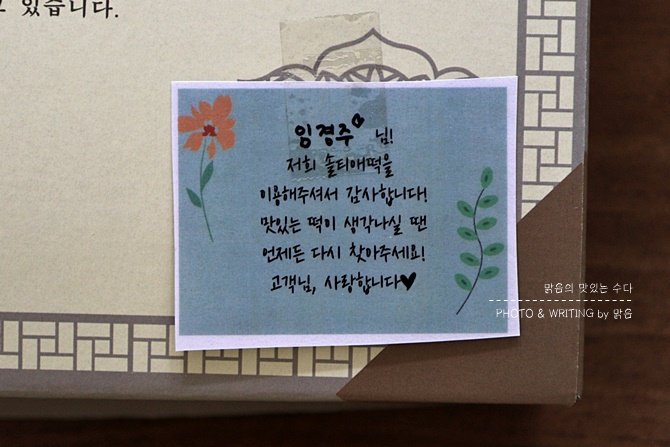 있습니다.
임경주 님!
저희 솔티애떡을
이용해주셔서 감사합니다!
맛있는 떡이 생각나실 땐
언제든 다시 찾아주세요!
고객님, 사랑합니다♥
맑음의 맛있는 수다
PHOTO & WRITING by 맑음